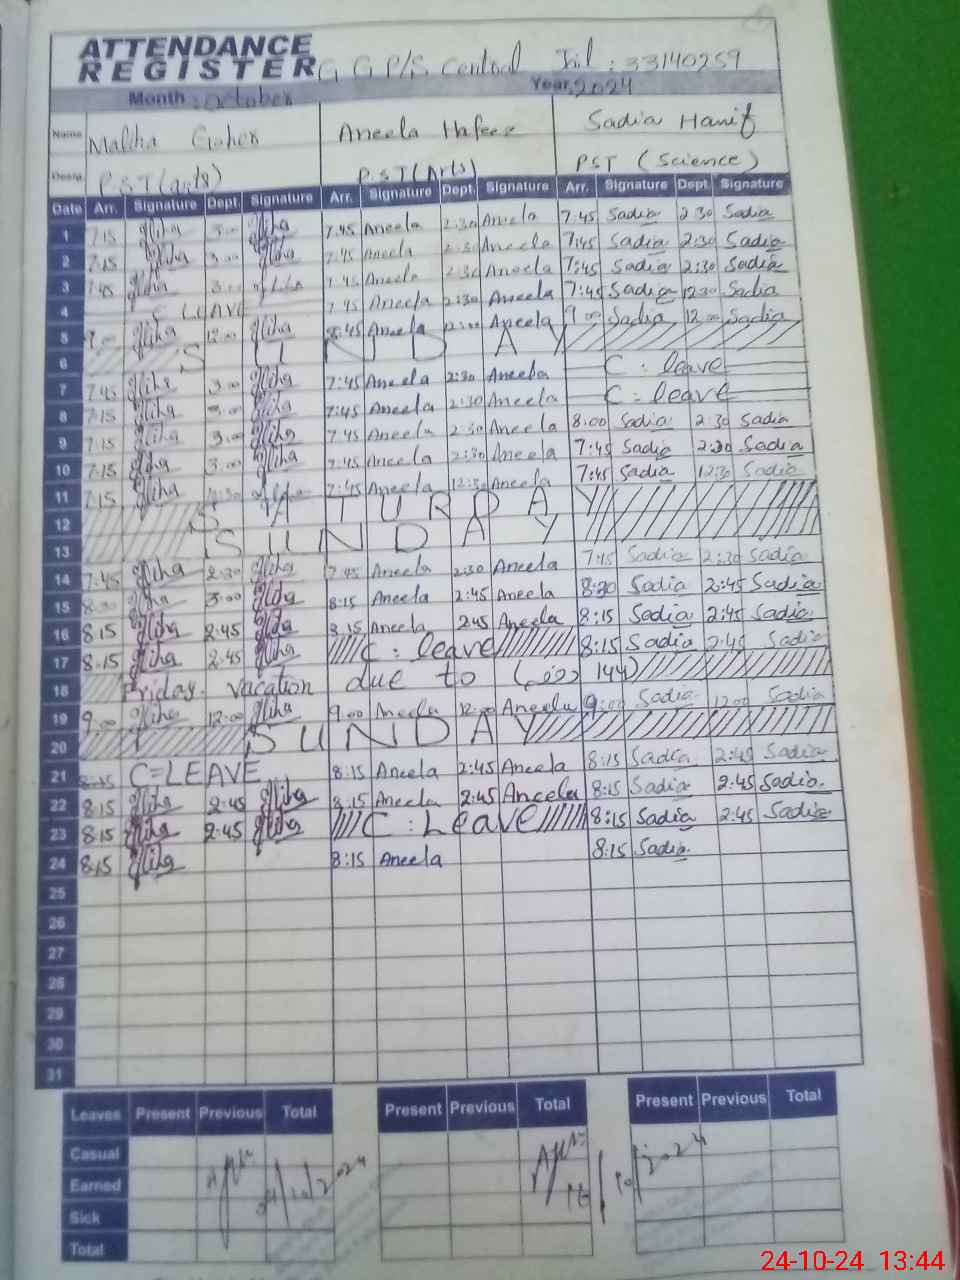 ATTENDANCE
REGISTER G G P/S Central Jail : 33140259
Month : October Year 2024
Name Maliha Aneela Hafeez Sadia Hanif
Desig. P.S.T (arts) P.S.T (Arts) PST (Science)
Date Arr. Signature Dept. Signature Arr. Signature Dept. Signature Arr. Signature Dept. Signature
1 7:15 3:00 7:45 Aneela 2:30 Aneela 7:45 Sadia 2:30 Sadia
2 7:15 3:00 7:45 Aneela 2:30 Aneela 7:45 Sadia 2:30 Sadia
3 7:45 3:00 7:45 Aneela 2:30 Aneela 7:45 Sadia 2:30 Sadia
4 C LEAVE 7:45 Aneela 2:30 Aneela 7:45 Sadia 12:30 Sadia
5 9:00 12:00 8:45 Aneela 12:00 Aneela 9:00 Sadia 12:00 Sadia
6 SUNDAY
7 7:45 3:00 7:45 Aneela 2:30 Aneela C : leave
8 7:15 3:00 7:45 Aneela 2:30 Aneela C : leave
9 7:15 3:00 7:45 Aneela 2:30 Aneela 8:00 Sadia 2:30 Sadia
10 7:15 3:00 7:45 Aneela 2:30 Aneela 7:45 Sadia 2:30 Sadia
11 7:15 12:30 7:45 Aneela 12:30 Aneela 7:45 Sadia 12:30 Sadia
12 SATURDAY
13 SUNDAY
14 7:45 2:30 7:45 Aneela 2:30 Aneela 7:45 Sadia 2:30 Sadia
15 8:30 3:00 8:15 Aneela 2:45 Aneela 8:30 Sadia 2:45 Sadia
16 8:15 2:45 8:15 Aneela 2:45 Aneela 8:15 Sadia 2:45 Sadia
17 8:15 2:45 C : leave 8:15 Sadia 2:45 Sadia
18 Friday. vacation due to (دفعہ 144)
19 9:00 12:00 9:00 Aneela 12:00 Aneela 9:00 Sadia 12:00 Sadia
20 SUNDAY
21 8:15 C=LEAVE 8:15 Aneela 2:45 Aneela 8:15 Sadia 2:45 Sadia
22 8:15 2:45 8:15 Aneela 2:45 Aneela 8:15 Sadia 2:45 Sadia.
23 8:15 2:45 C : Leave 8:15 Sadia 2:45 Sadia
24 8:15 8:15 Aneela 8:15 Sadia
25
26
27
28
29
30
31
Leaves Present Previous Total Present Previous Total Present Previous Total
Casual
Earned
Sick
Total
24-10-24 13:44